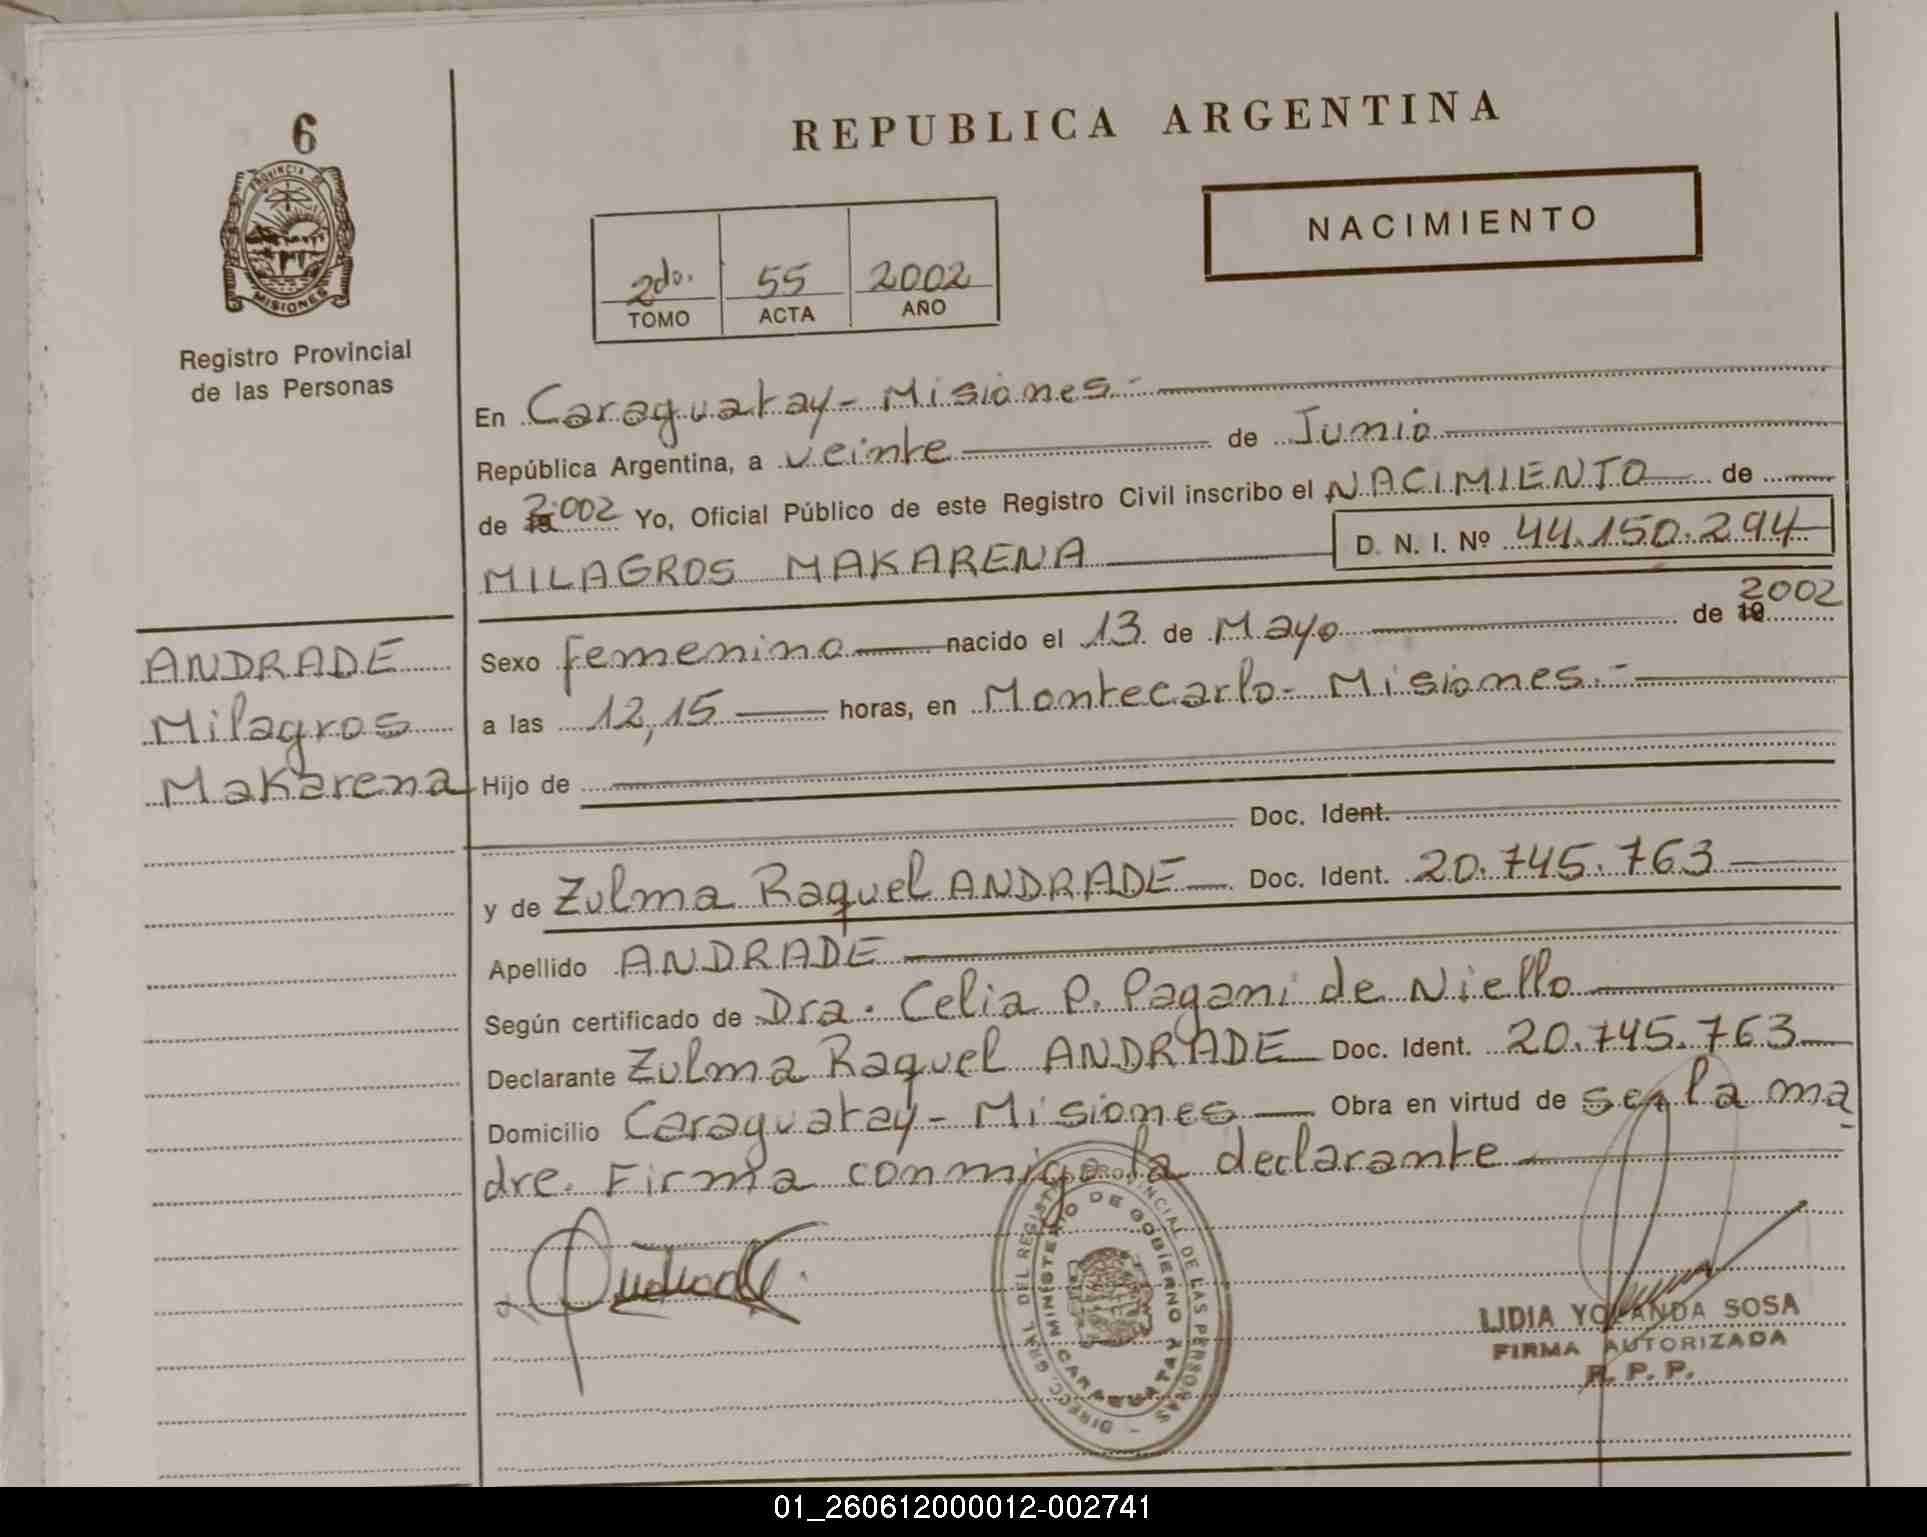 6
PROVINCIA DE
MISIONES
Registro Provincial
de las Personas
REPUBLICA ARGENTINA
NACIMIENTO
2do. 55 2002
TOMO ACTA AÑO
En Caraguatay - Misiones.-
República Argentina, a veinte de Junio
de 2002 Yo, Oficial Público de este Registro Civil inscribo el NACIMIENTO de
MILAGROS MAKARENA D. N. I. Nº 44.150.294
ANDRADE
Milagros
Makarena
Sexo femenino nacido el 13 de Mayo de 19 2002
a las 12,15 horas, en Montecarlo - Misiones.-
Hijo de
Doc. Ident.
y de Zulma Raquel ANDRADE Doc. Ident. 20.745.763
Apellido ANDRADE
Según certificado de Dra. Celia P. Pagani de Niello
Declarante Zulma Raquel ANDRADE Doc. Ident. 20.745.763
Domicilio Caraguatay - Misiones Obra en virtud de ser la ma
dre. Firma conmigo la declarante
DIREC. GRAL. DEL REGISTRO PROVINCIAL DE LAS PERSONAS
MINISTERIO DE GOBIERNO
CARAGUATAY
LIDIA YOLANDA SOSA
FIRMA AUTORIZADA
R. P. P.
01_260612000012-002741